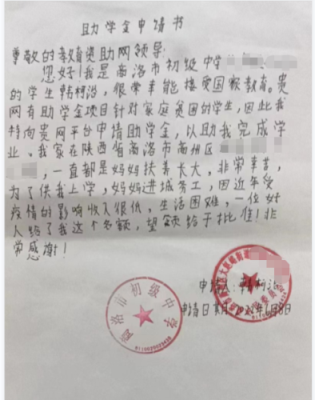 助学金申请书
尊敬的教育资助网领导:
您好!我是商洛市初级中学
的学生韩,很荣幸能接受国家教育。贵
网有助学金项目针对家庭贫困的学生,因此我
特向贵网平台申请助学金,以助我完成学
业。我家在陕西省商洛市商州区
,一直都是妈妈抚养长大,非常辛苦,
为了供我上学,妈妈进城务工,因近年受
疫情的影响收入很低,生活困难,一位好
人给了我这个名额,望领给于批准!非
常感谢!
申请人:
申请日期:
商洛市初级中学